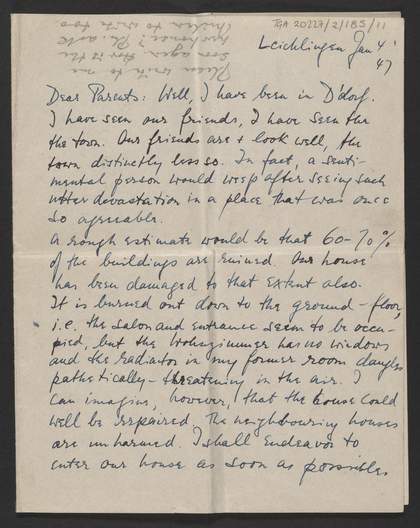 RA 20227/2/185/11
Please write to me
soon again. How is the
Leichlingen Jan 4'
47
Dear Parents: Well, I have been in D'dorf.
I have seen our friends, I have seen the
the town. Our friends are & look well, the
town distinctly less so. In fact, a senti-
mental person would weep after seeing such
utter devastation in a place that was once
so agreeable.
A rough estimate would be that 60-70%
of the buildings are ruined. Our house
has been damaged to that extent also.
It is burned out down to the ground-floor,
i.e. the salon and entrance seem to be occu-
pied, but the Wohnzimmer has no windows
and the radiator in my former room dangles
pathetically-threatening in the air. I
can imagine, however, that the house could
well be repaired. The neighbouring houses
are unharmed. I shall endeavor to
enter our house as soon as possible.